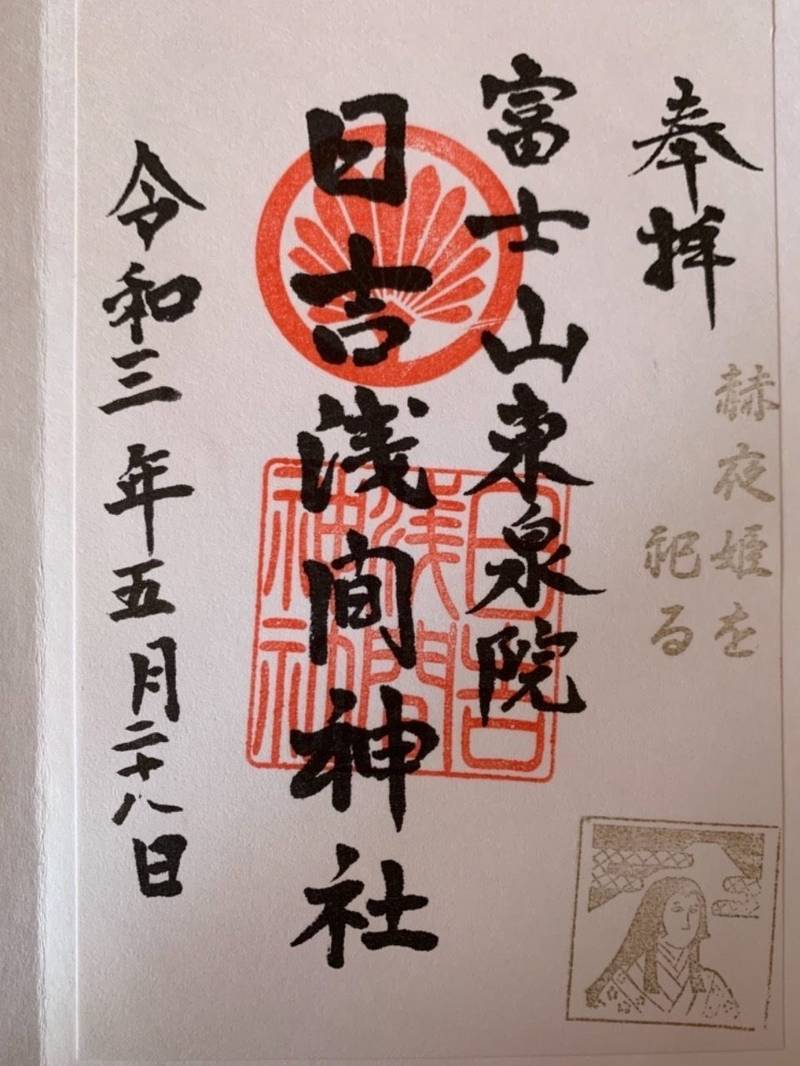 奉拝
赫夜姫を
祀る
富士山東泉院
日吉浅間神社
日吉
浅間
神社
令和三年五月二十八日